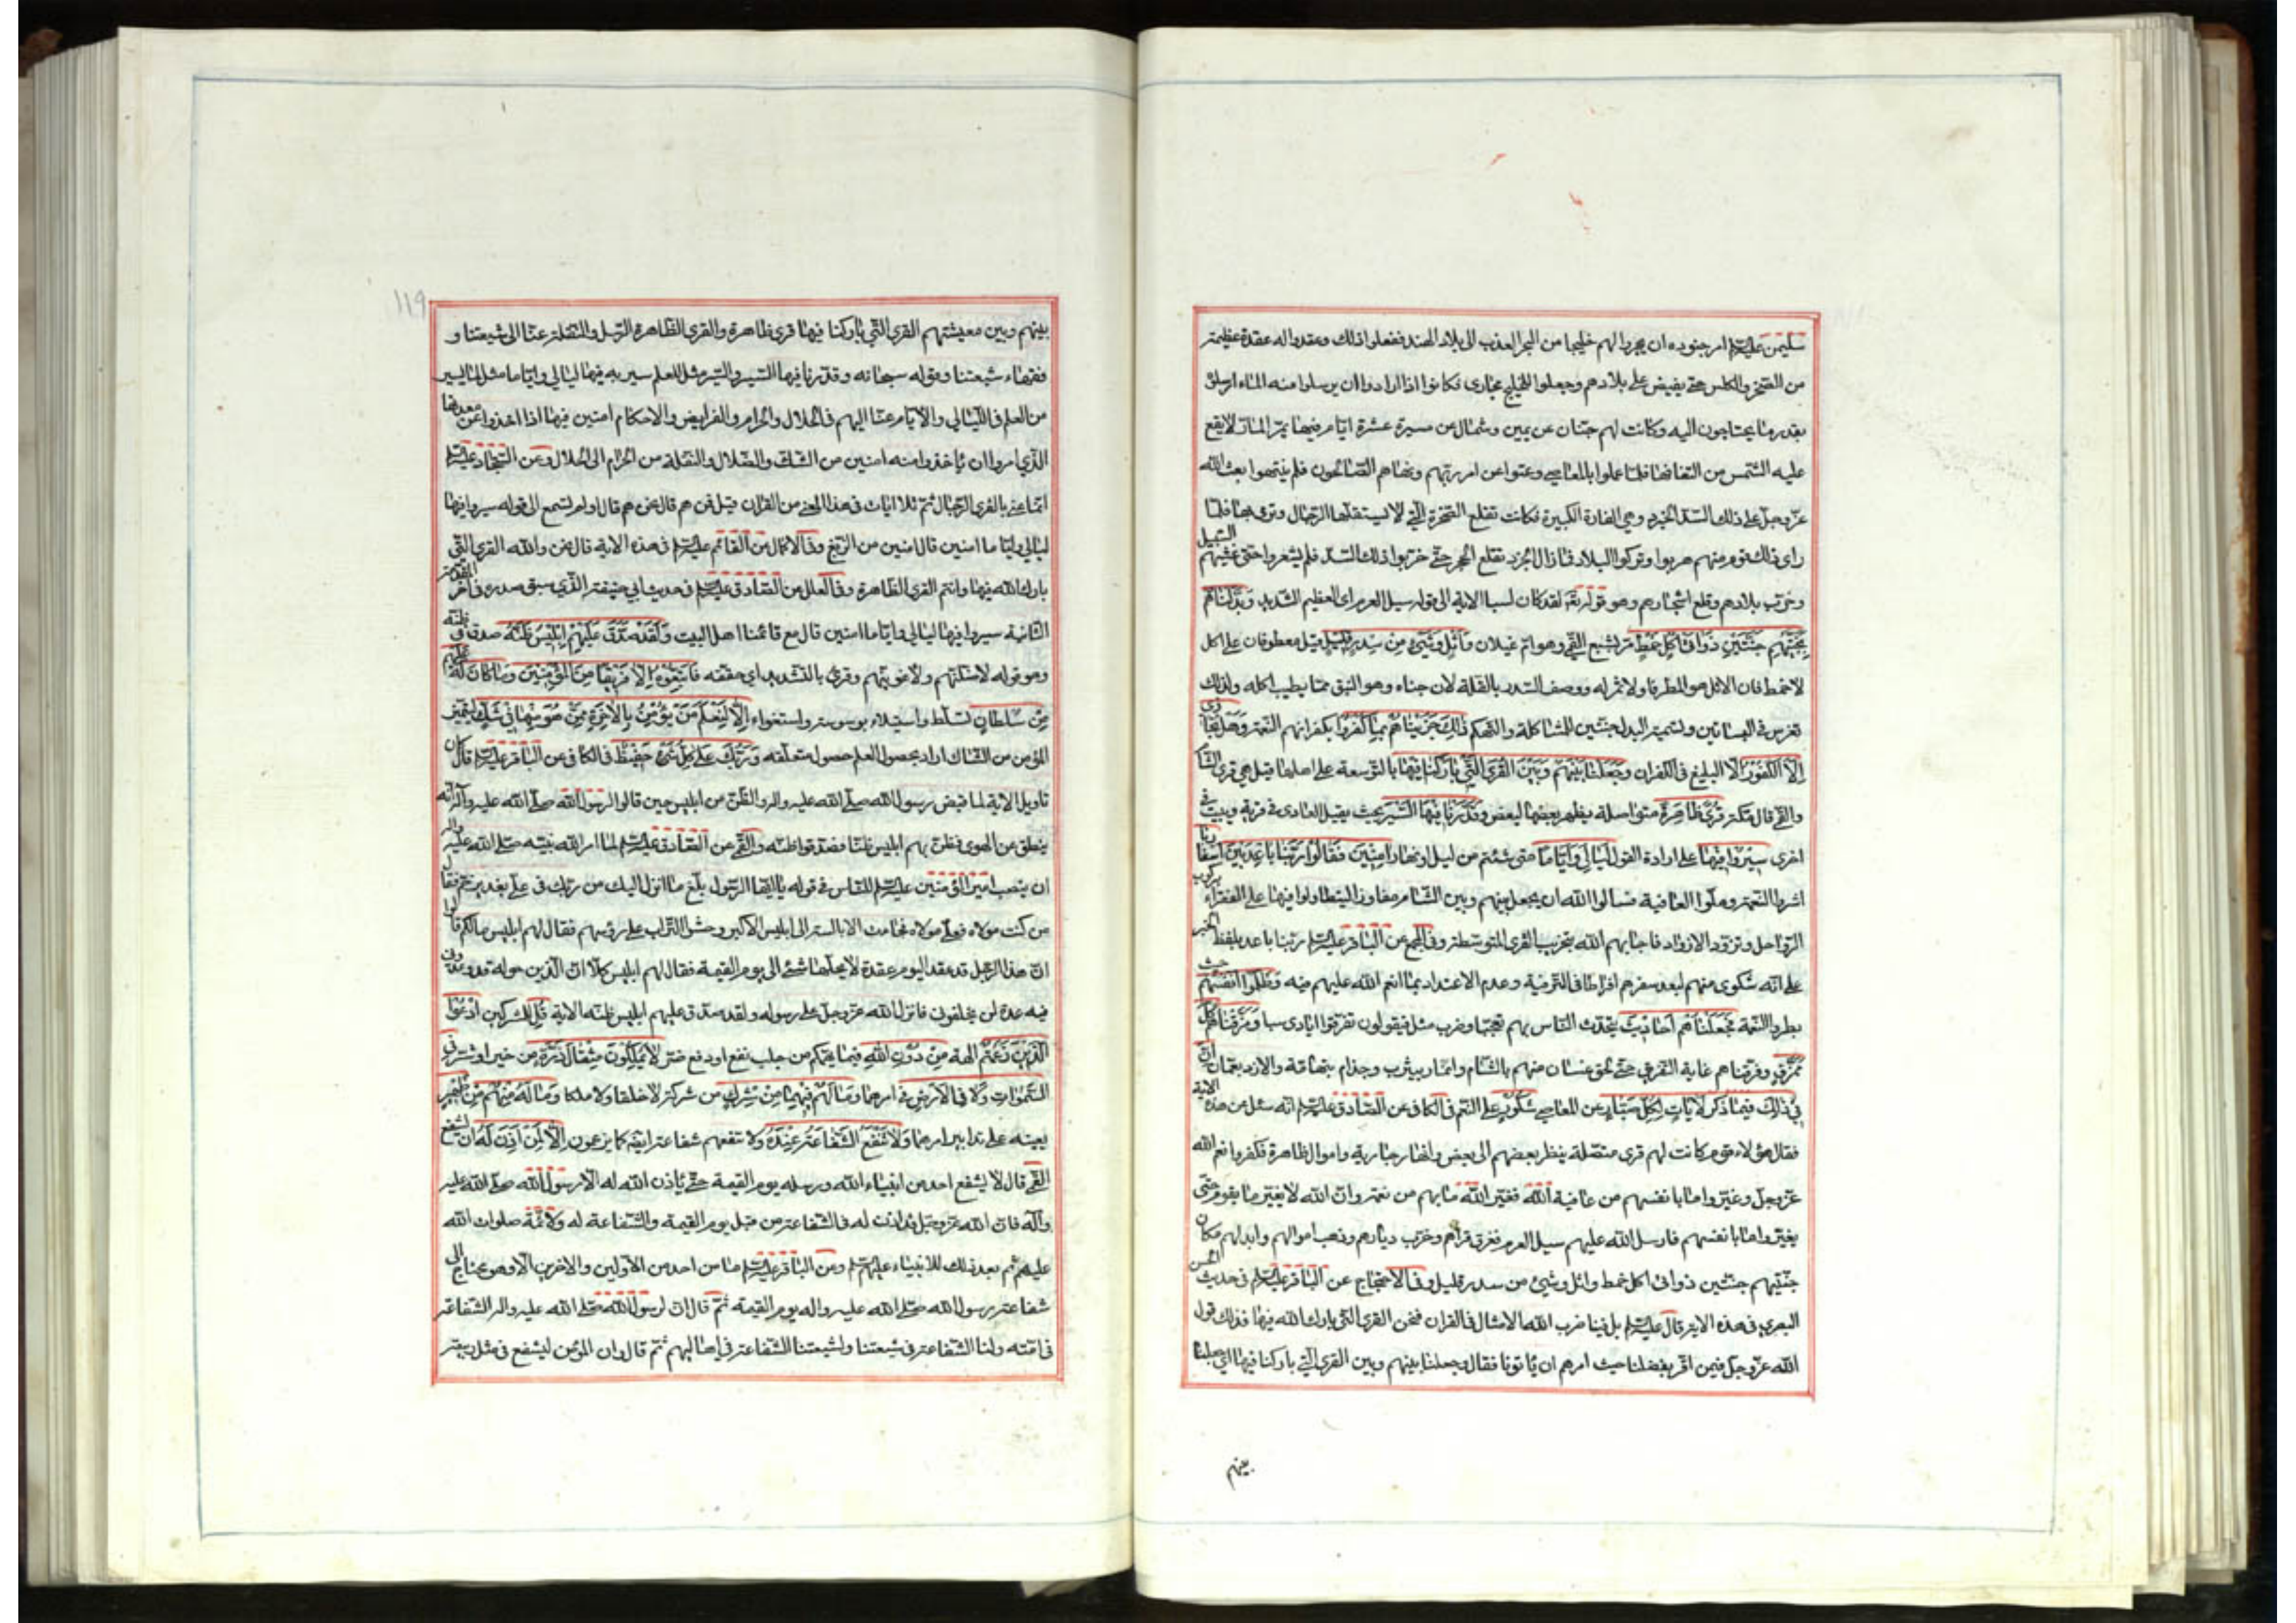 سليمن عليه السلم امر جنوده ان يجروا لهم خليجا من البحر العذب الى بلاد الهند ففعلوا ذلك وعقدوا له عقدة عظيمة
من الصخر والكلس حتى يفيض على بلادهم وجعلوا للخليج مجاري فكانوا اذا ارادوا ان يرسلوا منه الماء ارسلوه
بقدر ما يحتاجون اليه وكانت لهم جنتان عن يمين وشمال عن مسيرة عشرة ايام فيها يمر المار لا يقع
عليه الشمس من التفافها فلما عملوا بالمعاصي وعتوا عن امر ربهم ونهاهم الصالحون فلم ينتهوا بعث الله
عز وجل على ذلك السد الجرذ وهي الفارة الكبيرة فكانت تقلع الصخرة التي لا يستقلها الرجال وترمي بها فلما
راى ذلك قوم منهم هربوا وتركوا البلاد فما زال الجرذ تقلع الحجر حتى خربوا ذلك السد فلم يشعروا حتى غشيهم السيل
وخرب بلادهم وقلع اشجارهم وهو قوله تعالى لقد كان لسبا الاية الى قوله سيل العرم اى العظيم الشديد وَبَدَّلْناهُم
بِجَنَّتَيْهِم جَنَّتَيْنِ ذَواتَى اُكُلٍ خَمْطٍ مر بشع القمي وهو ام غيلان وَاَثْلٍ وَشَيْءٍ مِنْ سِدْرٍ قَليلٍ قيل معطوفان على اكل
لا خمط فان الاثل هو الطرفا ولا ثمر له ووصف السدر بالقلة لان جناه وهو النبق مما يطيب اكله ولذلك
تغرس في البساتين وتسمية البدل جنتين للمشاكلة والتهكم ذلِكَ جَزَيْناهُمْ بِما كَفَرُوا بكفرانهم النعمة وَهَلْ نُجازى
اِلَّا الْكَفُورَ الا البليغ في الكفران وَجَعَلْنا بَيْنَهُمْ وَبَيْنَ الْقُرَى الَّتي بارَكْنا فيها بالتوسعة على اهلها قيل هي قرى الشام
والقمي قال مكة قُرًى ظاهِرَةً متواصلة يظهر بعضها لبعض وَقَدَّرْنا فيهَا السَّيْرَ بحيث يقيل الغادى في قرية ويبيت في
اخرى سيرُوا فيها على ارادة القول لَيالِيَ وَاَيّامًا متى شئتم من ليل او نهار آمِنينَ فَقالُوا رَبَّنا باعِدْ بَيْنَ اَسْفارِنا
اشروا النعمة وملوا العافية فسالوا الله ان يجعل بينهم وبين الشام مفاوز ليتطاولوا فيها على الفقراء بركوب
الرواحل وتزود الازواد فاجابهم الله بتخريب القرى المتوسطة وفي المجمع عن الباقر عليه السلم ربنا باعد بلفظ الخبر
على انه شكوى منهم لبعد سفرهم افراطا في الترفية وعدم الاعتداد بما انعم الله عليهم فيه وَظَلَمُوا اَنْفُسَهُمْ حيث
بطروا النعمة فَجَعَلْناهُمْ اَحاديثَ يتحدث الناس بهم تعجبا وضرب مثل فيقولون تفرقوا ايادى سبا وَمَزَّقْناهُمْ كُلَّ
مُمَزَّقٍ وفرقناهم غاية التفريق حتى لحق غسان منهم بالشام وانمار بيثرب وجذام بتهامة والازد بعمان اِنَّ
في ذلِكَ فيما ذكر لَآياتٍ لِكُلِّ صَبّارٍ عن المعاصي شَكُورٍ على النعم في الكافى عن الصادق عليه السلم انه سئل عن هذه الاية
فقال هؤلاء قوم كانت لهم قرى متصلة ينظر بعضهم الى بعض وانهار جارية واموال ظاهرة فكفروا نعم الله
عز وجل وغيروا ما بانفسهم من عافية الله فغير الله ما بهم من نعمة وان الله لا يغير ما بقوم حتى
يغيروا ما بانفسهم فارسل الله عليهم سيل العرم فغرق قراهم وخرب ديارهم وذهب اموالهم وابدلهم مكان
جنتيهم جنتين ذواتى اكل خمط واثل وشيئ من سدر قليل وفي الاحتجاج عن الباقر عليه السلم في حديث الحسن
البصري في هذه الاية قال عليه السلم بل فينا ضرب الله الامثال في القران فنحن القرى التي بارك الله فيها فذلك قول
الله عز وجل فيمن اقر بفضلنا حيث امرهم ان ياتونا فقال وجعلنا بينهم وبين القرى التي باركنا فيها اى جعلنا
بينهم
119
بينهم وبين معيشتهم القرى التي باركنا فيها قرى ظاهرة والقرى الظاهرة الرسل والنقلة عنا الى شيعتنا و
فقهاء شيعتنا وقوله سبحانه وقدرنا فيها السير والسير مثل للعلم سير به فيها ليالي واياما مثل لما يسير
من العلم في الليالي والايام عنا اليهم في الحلال والحرام والفرايض والاحكام امنين فيها اذا اخذوا عن معدنها
الذي امروا ان ياخذوا منه امنين من الشك والضلال والنقلة من الحرام الى الحلال وعن السجاد عليه السلم
انما عنى بالقرى الرجال ثم تلا ايات في هذا المعنى من القران قيل فمن هم قال نحن هم قال اولم تسمع الى قوله سيروا فيها
ليالي واياما امنين قال امنين من الزيغ وفي الاكمال عن القائم عليه السلم في هذه الاية قال نحن والله القرى التي
بارك الله فيها وانتم القرى الظاهرة وفي العلل عن الصادق عليه السلم في حديث ابي حنيفة الذي سبق صدره في اخر المقدمة
الثانية سيروا فيها ليالي واياما امنين قال مع قائمنا اهل البيت وَلَقَدْ صَدَّقَ عَلَيْهِمْ اِبْليسُ ظَنَّهُ صدق في ظنه
وهو قوله لاضلنهم ولاغوينهم وقرئ بالتشديد اى حققه فَاتَّبَعُوهُ اِلّا فَريقًا مِنَ الْمُؤْمِنينَ وَما كانَ لَهُ عَلَيْهِم
مِنْ سُلْطانٍ تسلط واستيلاء بوسوسة واستغواء اِلّا لِنَعْلَمَ مَنْ يُؤْمِنُ بِالْآخِرَةِ مِمَّنْ هُوَ مِنْها في شَكٍّ ليتميز
المؤمن من الشاك اراد بحصول العلم حصول متعلقه وَرَبُّكَ عَلى كُلِّ شَيْءٍ حَفيظٌ في الكافى عن الباقر عليه السلم قال كان
تاويل الاية لما قبض رسول الله صلى الله عليه واله والظن من ابليس حين قالوا لرسول الله صلى الله عليه واله انه
ينطق عن الهوى فظن بهم ابليس ظنا فصدقوا ظنه والقمي عن الصادق عليه السلم لما امر الله نبيه صلى الله عليه واله
ان ينصب امير المؤمنين عليه السلم للناس في قوله يا ايها الرسول بلغ ما انزل اليك من ربك في علي بغدير خم فقال
من كنت مولاه فعلي مولاه فجاءت الابالسة الى ابليس الاكبر وحثوا التراب على رؤسهم فقال لهم ابليس ما لكم قالوا
ان هذا الرجل قد عقد اليوم عقدة لا يحلها شئ الى يوم القيمة فقال لهم ابليس كلا ان الذين حوله قد وعدوني
فيه عدة لن يخلفوني فانزل الله عز وجل على رسوله ولقد صدق عليهم ابليس ظنه الاية قُلِ للمشركين ادْعُوا
الَّذينَ زَعَمْتُمْ الهة مِنْ دُونِ اللهِ فيما يهمكم من جلب نفع او دفع ضر لا يَمْلِكُونَ مِثْقالَ ذَرَّةٍ من خير او شر فِي
السَّمواتِ وَلا فِي الْاَرْضِ في امر ما وَما لَهُمْ فيهِما مِنْ شِرْكٍ من شركة لا خلقا ولا ملكا وَما لَهُ مِنْهُمْ مِنْ ظَهيرٍ
يعينه على تدابير امرهما وَلا تَنْفَعُ الشَّفاعَةُ عِنْدَهُ ولا تنفعهم شفاعة ايضا كما يزعمون اِلّا لِمَنْ اَذِنَ لَهُ ان يشفع
القمي قال لا يشفع احد من انبياء الله ورسله يوم القيمة حتى ياذن الله له الا رسول الله صلى الله عليه
وآله فان الله عز وجل قد اذن له في الشفاعة من قبل يوم القيمة والشفاعة له وللائمة صلوات الله
عليهم ثم بعد ذلك للانبياء عليهم السلم وعن الباقر عليه السلم ما من احد من الاولين والاخرين الا وهو محتاج الى
شفاعة رسول الله صلى الله عليه واله يوم القيمة ثم قال ان لرسول الله صلى الله عليه واله الشفاعة
في امته ولنا الشفاعة في شيعتنا ولشيعتنا الشفاعة في اهاليهم ثم قال وان المؤمن ليشفع في مثل ربيعة